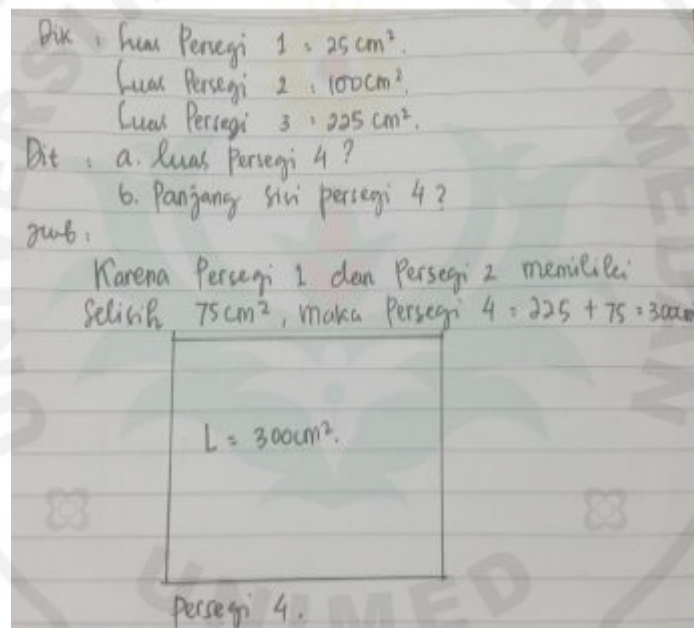 Dik : Luas Persegi 1 : 25 cm².
Luas Persegi 2 : 100 cm².
Luas Persegi 3 : 225 cm².
Dit : a. Luas Persegi 4 ?
b. Panjang sisi persegi 4 ?
Jwb :
Karena Persegi 1 dan Persegi 2 memiliki
Selisih 75 cm², maka Persegi 4 : 225 + 75 = 300cm
L = 300cm².
Persegi 4.
UNIMED